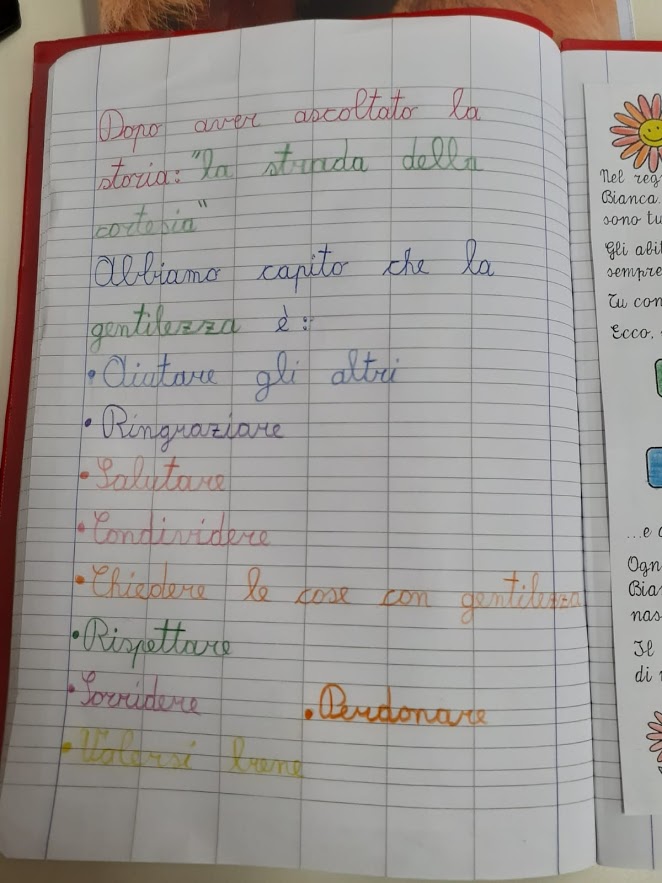 Dopo aver ascoltato la
storia: "la strada della
cortesia"
Abbiamo capito che la
gentilezza è:
• Aiutare gli altri
• Ringraziare
• Salutare
• Condividere
• Chiedere le cose con gentilezza
• Rispettare
• Sorridere
• Perdonare
• Volersi bene
Nel
Bianca
sono
Gli
sempre
Tu con
Ecco,
...e
di